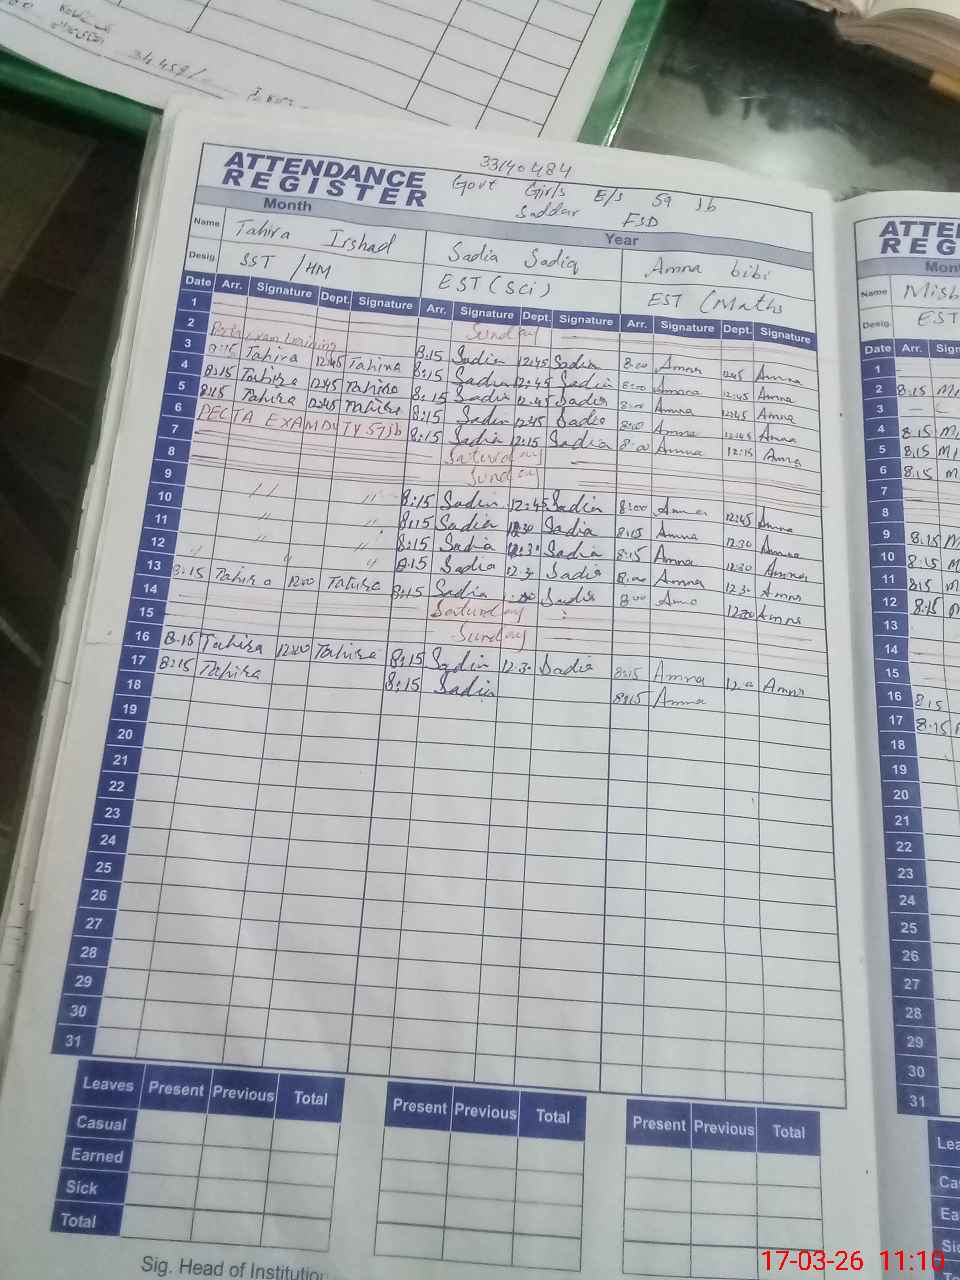 34458/-
33140484
ATTENDANCE REGISTER
Govt Girls E/S 59 Jb
Saddar FSD
Month Year
Name Tahira Irshad Sadia Sadiq Amna bibi
Desig. SST /HM EST (Sci) EST (Maths
Date Arr. Signature Dept. Signature Arr. Signature Dept. Signature Arr. Signature Dept. Signature
1 Sunday
2 exam training 8:15 Sadia 12:45 Sadia 8:00 Amna 12:45 Amna
3 8:15 Tahira 12:45 Tahira 8:15 Sadia 12:45 Sadia 8:00 Amna 12:45 Amna
4 8:15 Tahira 12:45 Tahira 8:15 Sadia 12:45 Sadia 8:00 Amna 12:45 Amna
5 8:15 Tahira 12:45 Tahira 8:15 Sadia 12:45 Sadia 8:00 Amna 12:45 Amna
6 PECTA EXAM DUTY 59jb 8:15 Sadia 12:15 Sadia 8:00 Amna 12:15 Amna
7 Saturday
8 Sunday
9 " " 8:15 Sadia 12:45 Sadia 8:00 Amna 12:45 Amna
10 " " 8:15 Sadia 12:30 Sadia 8:05 Amna 12:30 Amna
11 " " 8:15 Sadia 12:30 Sadia 8:15 Amna 12:30 Amna
12 " " 8:15 Sadia 12:30 Sadia 8:00 Amna 12:30 Amna
13 8:15 Tahira 12:00 Tahira 8:15 Sadia Sadia 8:00 Amna 12:00 Amna
14 Saturday
15 Sunday
16 8:15 Tahira 12:00 Tahira 8:15 Sadia 12:30 Sadia 8:15 Amna Amna
17 8:15 Tahira 8:15 Sadia 8:15 Amna
18
19
20
21
22
23
24
25
26
27
28
29
30
31
Leaves Present Previous Total Present Previous Total Present Previous Total
Casual
Earned
Sick
Total
Sig. Head of Institution
ATTE
REG
Mon
Name Mish
Desig. EST
Date Arr. Sign
1
2 8:15
3
4 8:15
5 8:15
6 8:15
7
8
9 8:15
10 8:15
11 8:15
12 8:15
13
14
15
16 8:15
17 8:15
18
19
20
21
22
23
24
25
26
27
28
29
30
31
Lea
Ca
Ea
Sic
17-03-26 11:10